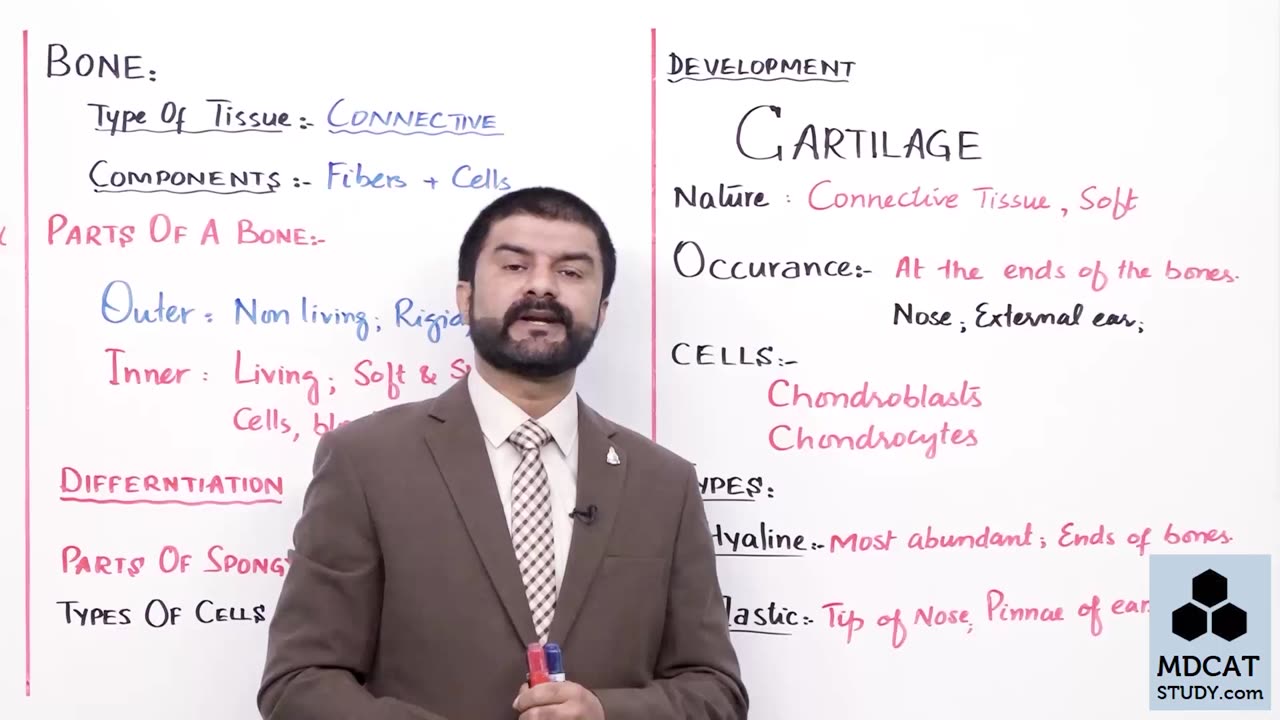 BONE:
Type Of Tissue:- CONNECTIVE
COMPONENTS:- Fibers + Cells
PARTS OF A BONE:-
Outer: Non living; Rigid
Inner: Living; Soft &
Cells,
DIFFERNTIATION
PARTS OF SPONGY
TYPES OF CELLS
DEVELOPMENT
CARTILAGE
Nature: Connective Tissue, Soft
Occurance:- At the ends of the bones.
Nose; External ear;
CELLS:-
Chondroblasts
Chondrocytes
TYPES:
Hyaline:- Most abundant; Ends of bones.
Elastic:- Tip of Nose; Pinnae of ear
MDCAT
STUDY.com